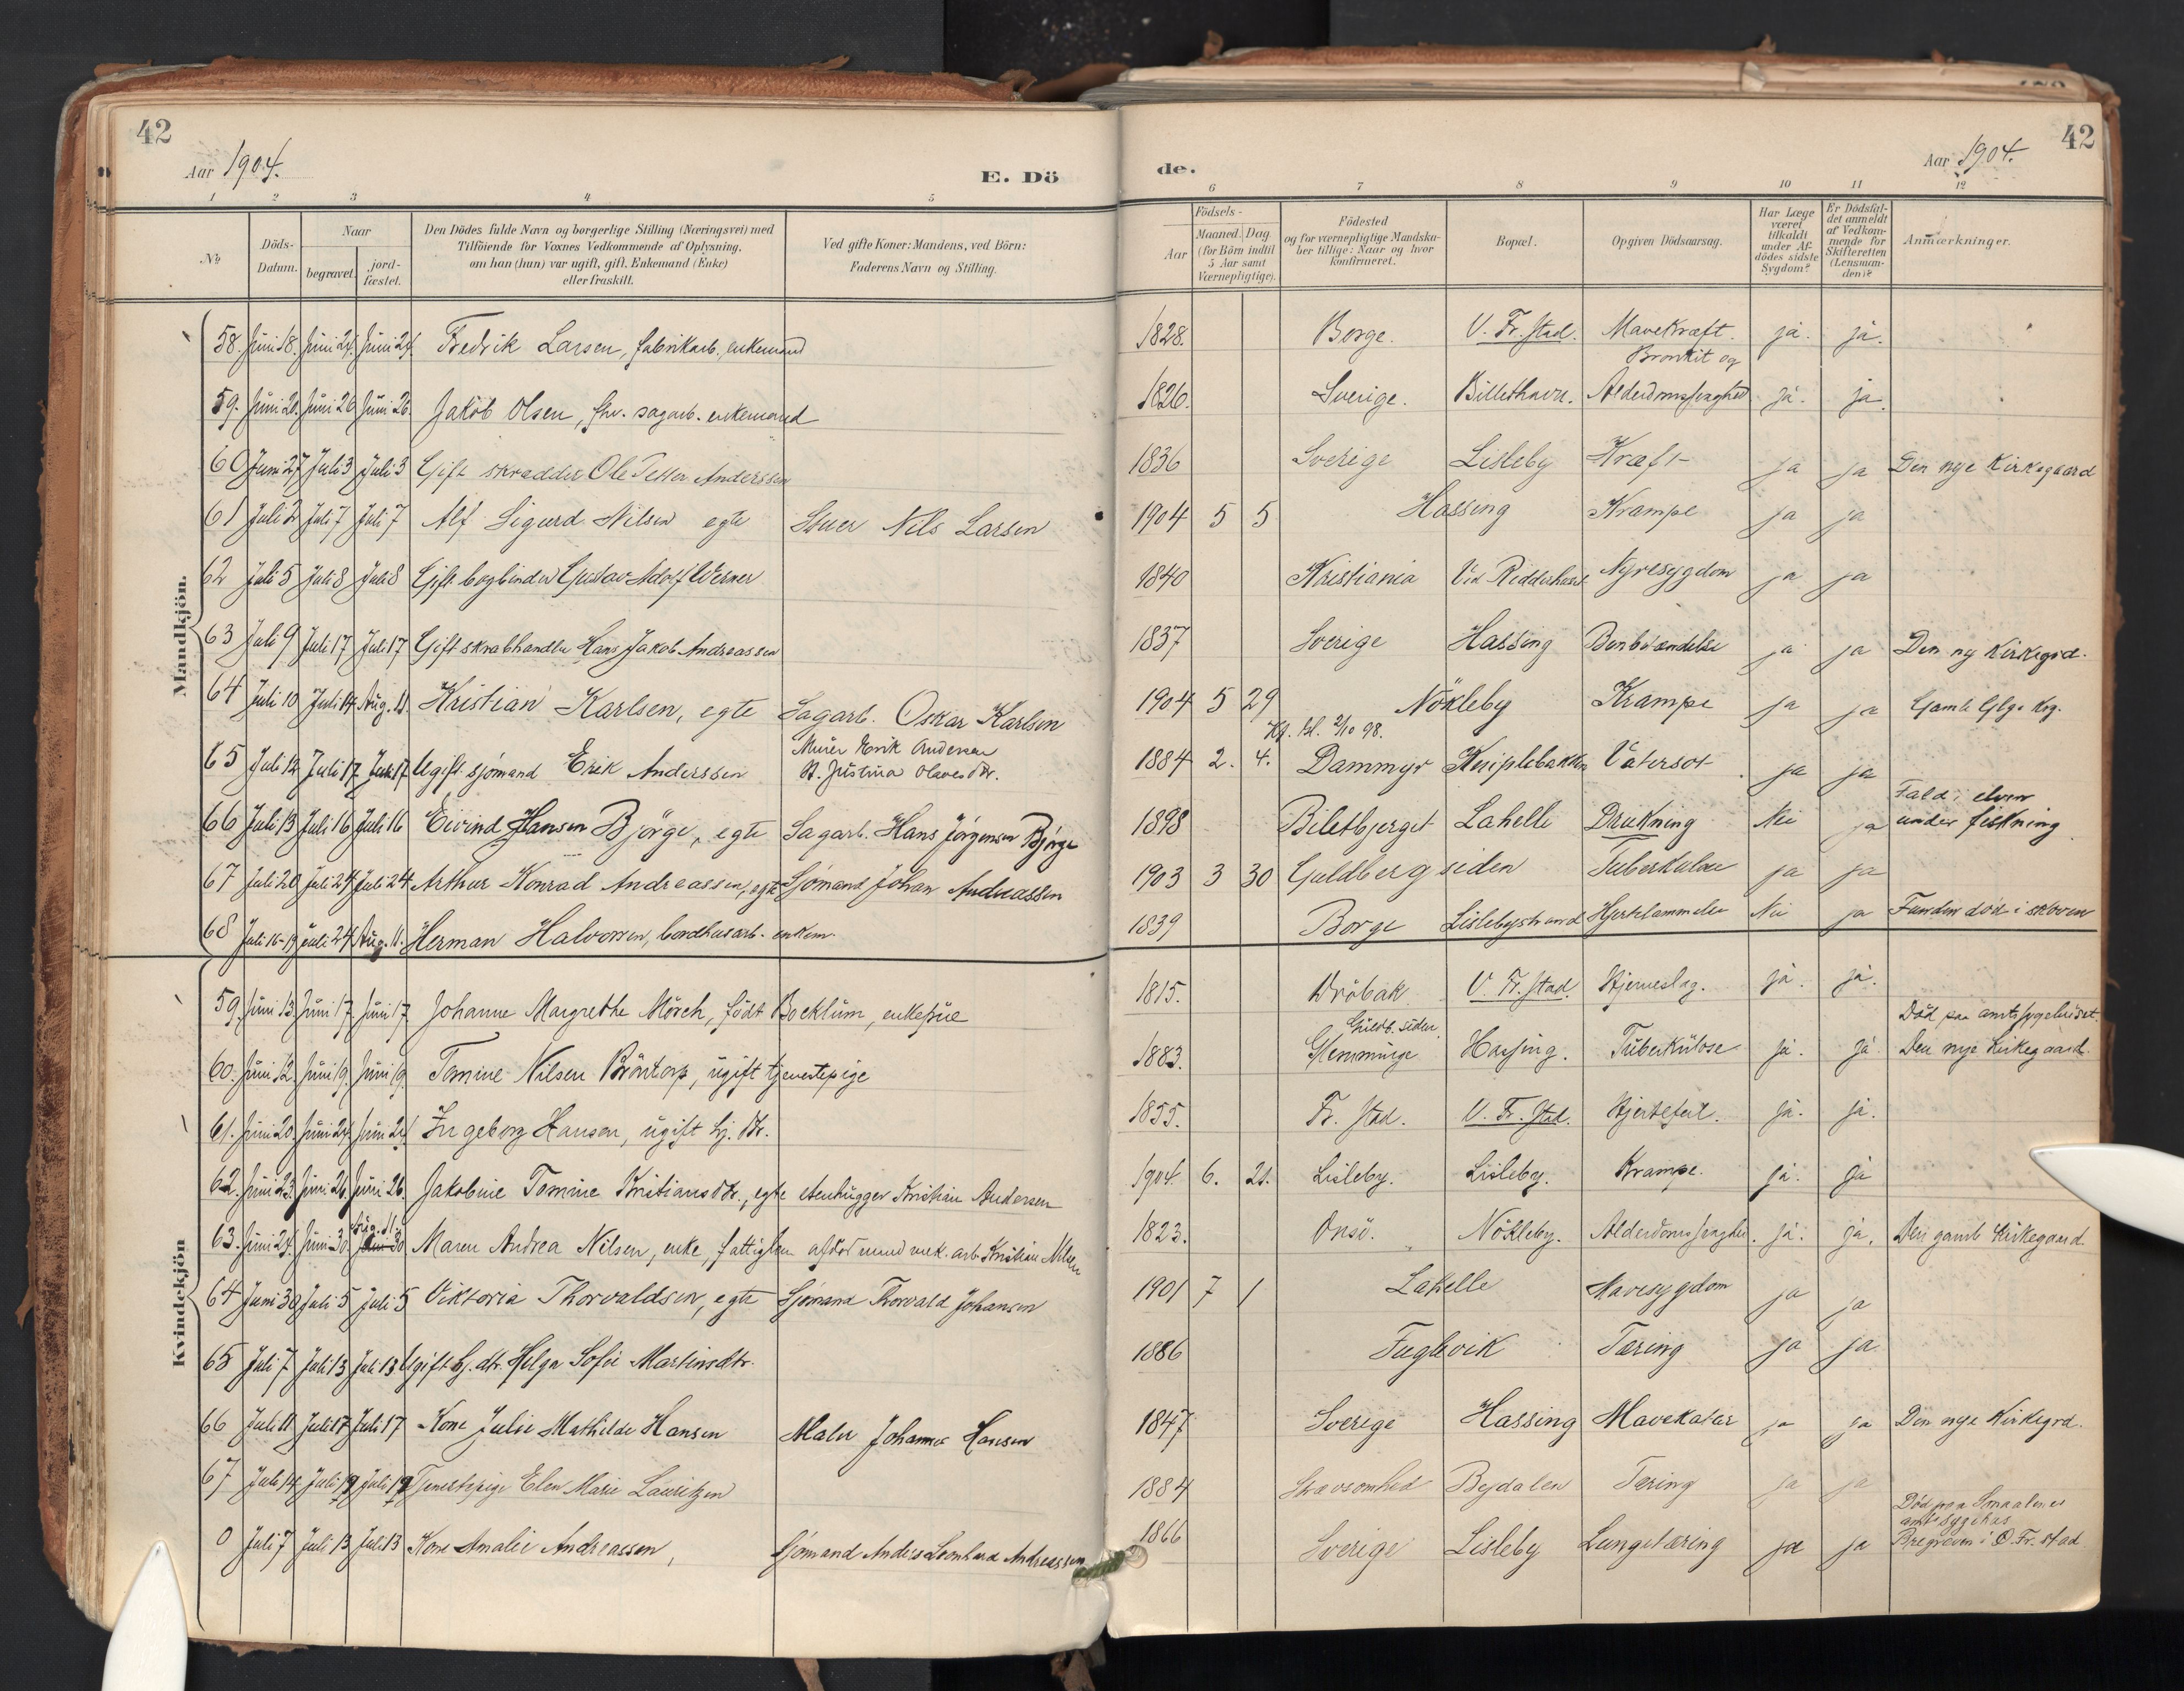 42
Aar 1904.
E. Dö
1 2 3 4 5
№
Döds-Datum.
Naar
begravet.
jord-fæstet.
Den Dödes fulde Navn og borgerlige Stilling (Næringsvei) med
Tilföiende for Voxnes Vedkommende af Oplysning,
om han (hun) var ugift, gift, Enkemand (Enke)
eller fraskilt.
Ved gifte Koner: Mandens, ved Börn:
Faderens Navn og Stilling.
de.
Aar 1904.
42
6 7 8 9 10 11 12
Födsels-
Aar
Maaned. Dag
(for Börn indtil
5 Aar samt
Værnepligtige).
Födested
og for værnepligtige Mandska-
ber tillige: Naar og hvor
konfirmeret.
Bopæl.
Opgiven Dödsaarsag.
Har Læge
været
tilkaldt
under Af-
dödes sidste
Sygdom?
Er Dödsfal-
det anmeldt
af Vedkom-
mende for
Skifteretten
(Lensman-
den)?
Anmærkninger.
Mandkjön.
58. Juni 18. Juni 24. Juni 24. Fredrik Larsen, fabrikarb., enkemand 1828. Borge. V. Fr.stad. Mavekræft. ja. ja.
59. Juni 20. Juni 26 Juni 26. Jakob Olsen, fhv. sagarb. enkemand 1826. Sverige. Billethavn. Bronkit og Alderdomssvaghed ja. ja.
60 Juni 27 Juli 3 Juli 3 Gift skrædder Ole Petter Anderssen 1836 Sverige Lisleby Kræft ja ja Den nye Kirkegaard
61 Juli 2 Juli 7 Juli 7 Alf Sigurd Nilsen egte Stuer Nils Larsen 1904 5 5 Hassing Krampe ja ja
62 Juli 5 Juli 8 Juli 8 Gift bogbinder Gustav Adolf Werner 1840 Kristiania Vid Ridderhuset Nyresygdom ja ja
63 Juli 9 Juli 17 Juli 17 Gift skrabhandler Hans Jakob Andreassen 1837 Sverige Hassing Benbrændelse ja ja Den ny Kirkegrd.
64 Juli 10 Juli 14 Aug. 11. Kristian Karlsen, egte Sagarb. Oskar Karlsen 1904 5 29 Nökleby Krampe ja ja Gamle Glge Kg.
65 Juli 12 Juli 17 Juli 17 Ugift sjömand Erik Anderssen Murer Erik Andersen H. Justina Olavesdtr. 1884 2. 4. Kf. Gl. 2/10 98. Dammyr Kniplebakken Vatersot ja ja
66 Juli 13 Juli 16 Juli 16 Eivind Hansen Björge, egte Sagarb. Hans Jörgensen Björge 1898 Biletbjerget Lahelle Drukning Nei ja Fald i elven under fiskning
67 Juli 20 Juli 24 Juli 24 Arthur Konrad Andreassen, egte Sjömand Johan Andreassen 1903 3 30 Guldbergsiden Tuberkulose ja ja
68 Juli 16-19 Juli 24 Aug. 11. Herman Halvorsen, bordhusarb. enkem. 1839 Borge Lislebystrand Hjertelammelse Nei ja Funden död i skoven
Kvindekjön
59. Juni 13. Juni 17. Juni 17 Johanne Margrethe Mörch, födt Bocklum, enkefrue 1815. Dröbak V. Fr.stad. Hjerneslag. ja. ja.
60. Juni 12. Juni 19. Juni 19. Tomine Nilsen Bröntorp, ugift tjenestepige 1883. Guldb. siden Glemminge Hassing. Tuberkulose ja. ja Död paa amtssygehuset. Den nye kirkegaard.
61. Juni 20. Juni 24. Juni 24 Ingeborg Hansen, ugift hj. dtr. 1855. Fr.stad. V. Fr.stad. Hjertefeil. ja. ja.
62. Juni 23. Juni 26. Juni 26. Jakobine Tomine Kristiansdtr., egte stenhugger Kristian Andersen 1904. 6. 21. Lisleby. Lisleby. Krampe. ja. ja
63. Juni 24. Juni 30. Aug. 11. Juni 30 Maren Andrea Nilsen, enke, fattiglem afdöd mand verk. arb. Kristian Nilsen 1823. Onsö. Nökleby. Alderdomssvaghed. ja. ja. Den gamle Kirkegaard.
64 Juni 30 Juli 5 Juli 5 Viktoria Thorvaldsen, egte Sjömand Thorvald Johansen 1901 7 1 Lahelle Mavesygdom ja ja
65 Juli 7 Juli 13 Juli 13 Ugift hj. dtr. Helga Sofie Martinsdtr. 1886 Fuglevik Tæring ja ja
66 Juli 11 Juli 17 Juli 17 Kone Julie Mathilde Hansen Maler Johannes Hansen 1847 Sverige Hassing Mavekatar ja ja Den nye Kirkegrd.
67 Juli 14 Juli 19 Juli 19 Tjenestepige Elen Marie Lauritzen 1884 Bydalen Tæring ja ja
0 Juli 7 Juli 13 Juli 13 Kone Amalie Andreassen, Sjömand Anders Leonhard Andreassen 1866 Sverige Lisleby Lungetæring ja ja Död paa Smaalenes amtssygehus Begraven i Ö. Fr.stad